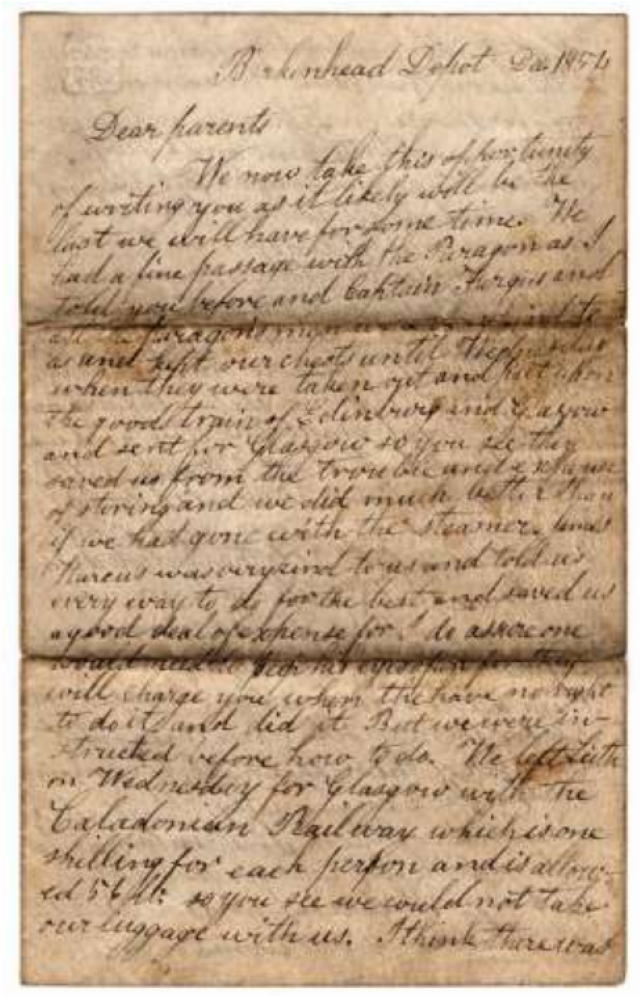 Birkenhead Depot Dec 1854
Dear parents
We now take this opportunity
of writing you as it likely will be the
last we will have for some time. We
had a fine passage with the Paragon as I
told you before and Captain Fergus and
all the Paragon's men
kept our chests until Wednesday
when they were taken out and put upon
the goods train of Edinburg and Glasgow
and sent for Glasgow so you see they
saved us from the trouble and expense
of storing and we did much better than
if we had gone with the steamer.
Marcus was very kind to us and told us
every way to do for the best and saved us
a good deal of expense for I do assure one
would need to for they
will charge you when the have no right
to do it and did it But we were in-
structed before how to do. We left Leith
on Wednesday for Glasgow with the
Caladonian Railway which is one
shilling for each person and is allow-
ed 56 lb: so you see we could not take
our luggage with us. I think there was